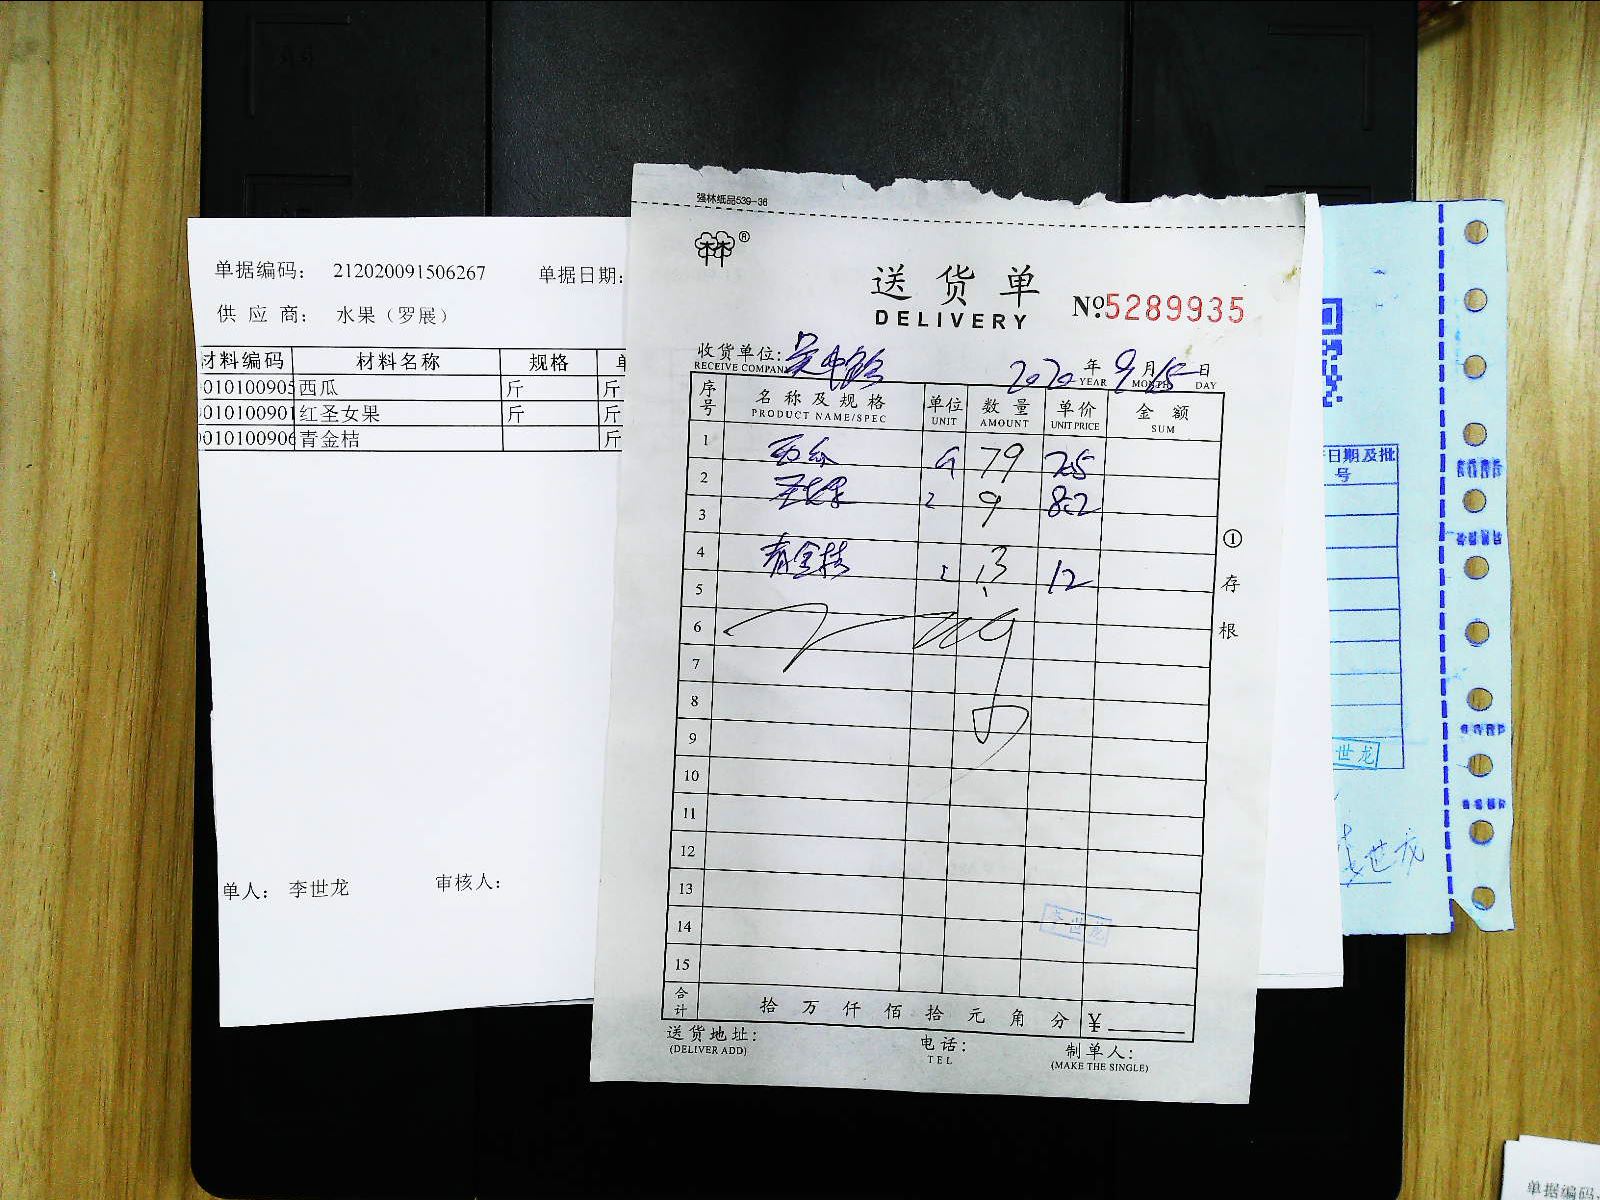 单据编码： 212020091506267 单据日期：
供 应 商： 水果（罗展）
材料编码 材料名称 规格 单
010100905 西瓜 斤 斤
010100901 红圣女果 斤 斤
010100906 青金桔 斤
单人： 李世龙 审核人：
强林纸品539-36
林®
送货单
DELIVERY
№5289935
收货单位：
RECEIVE COMPANY
2020 年 9 月 15 日
YEAR MONTH DAY
序号 名称及规格 单位 数量 单价 金额
PRODUCT NAME/SPEC UNIT AMOUNT UNIT PRICE SUM
1 西瓜 79
2
3 9 8.2
4 青金桔 13 12
5
6
7
8
9
10
11
12
13
14
15
李世龙
合计 拾 万 仟 佰 拾 元 角 分 ¥
送货地址： 电话： 制单人：
(DELIVER ADD) TEL (MAKE THE SINGLE)
①存根
日期及批号
世龙
李世龙
单据编码